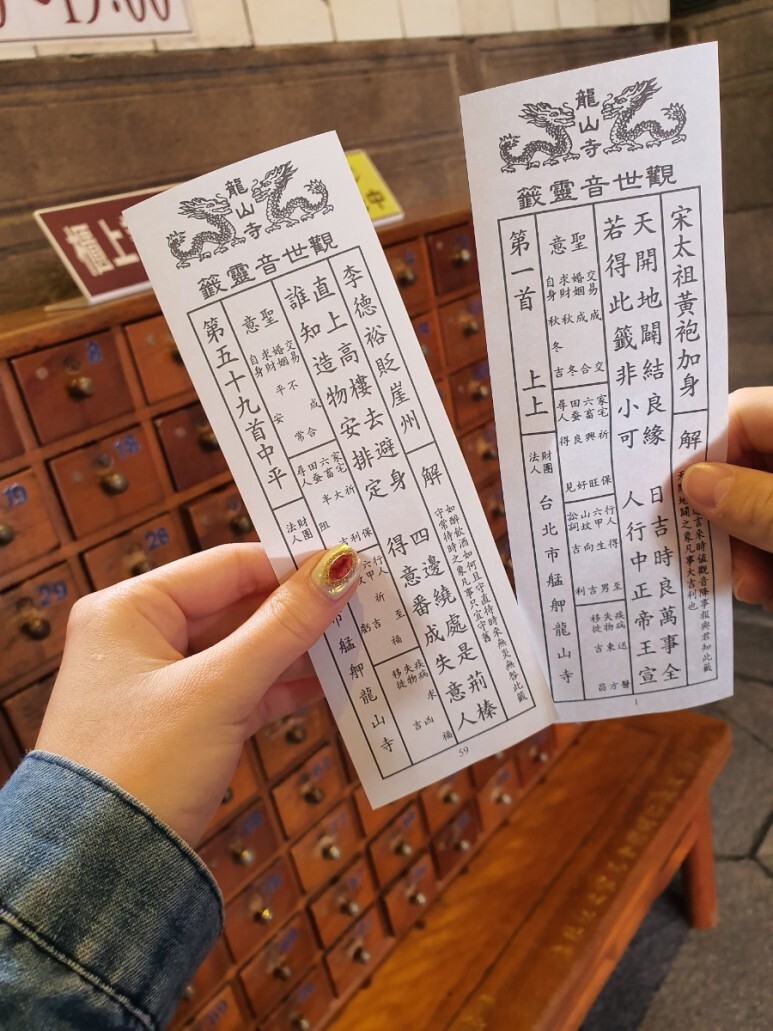 ~17:00
櫃上
中
8
19
26
29
龍山寺
觀世音靈籤
李德裕貶崖州
解
如醉飲酒如何且守直待時來無災無咎此籤
守常待時之象凡事只宜守舊
直上高樓去避身 四邊繞處是荊榛
誰知造物安排定 得意番成失意人
聖意
交易不成
婚姻 合
求財平
自身安常
家宅祈保
六畜大利
田蠶半吉
尋人阻
行人至
六甲祈福
疾病求福
失物凶
移徙吉
第五十九首中平
財團法人
艋舺龍山寺
59
龍山寺
觀世音靈籤
宋太祖黃袍加身
解
天開地闢結良緣 日吉時良萬事全
若得此籤非小可 人行中正帝王宣
聖意
交易成交
婚姻成合
求財秋冬
自身秋冬吉
家宅祈保
六畜興旺
田蠶良好
尋人得見
行人得至
六甲生男
山墳向吉
訟詞吉利
疾病送醫
失物東方
移徙吉昌
第一首 上上
財團法人
台北市艋舺龍山寺
1